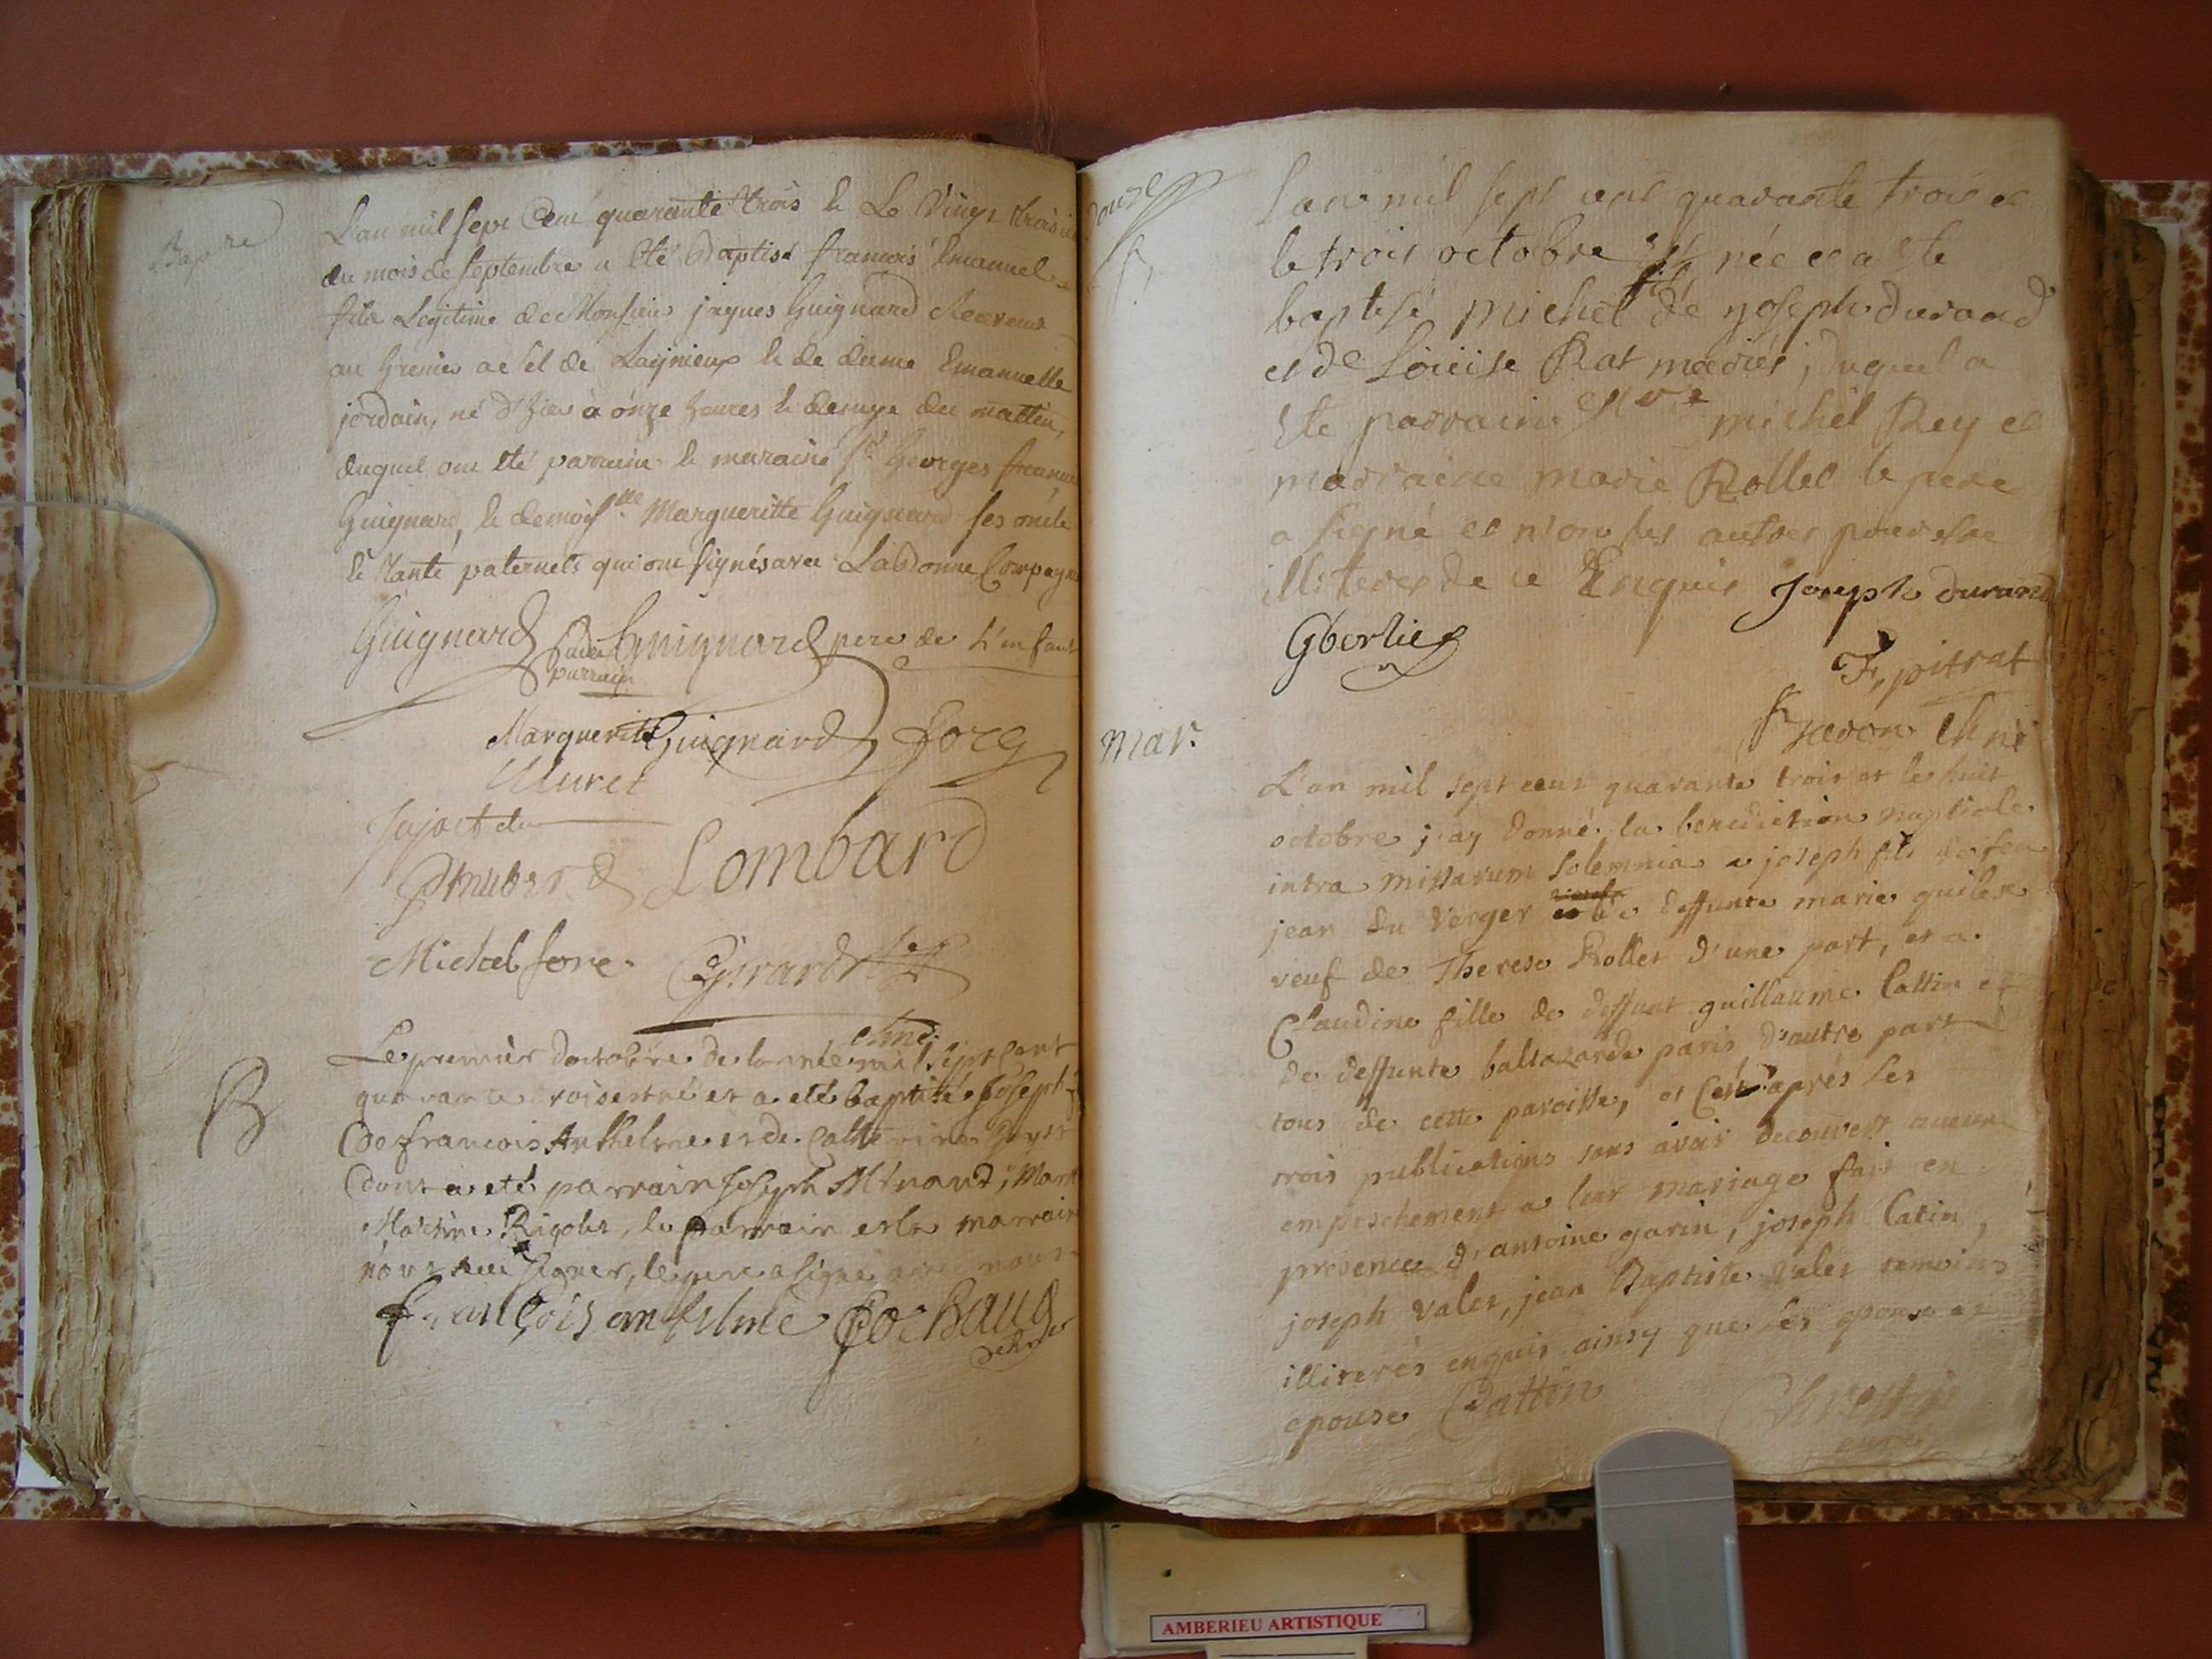 L'an mil sept Cent quarante trois & Le Vingt trois
du mois de septembre a été Baptisé francois Emanuel
fils Legitime de Monsieur jaques Guignard Receveur
au Grenier a sel de Lagnieux & de dame Emanuelle
jordain, né d'hier à onze heures & demye du mattin,
duquel ont été parrain & maraine Sr. Georges
Guignard, & demoislle. Margueritte Guignard ses oncle
& tante paternels qui ont signés avec La bonne Compagnie
Guignard parrain Guignard pere de L'enfant
Marguerite Guignard
Muret
Lombard
Michel
Girard
B
Le premier doctobre de lannée mil sept cent
quarante trois est né et a eté baptisé Joseph
de francois Anthelme et de Catherine
dont a eté parrain Joseph
Martine, le parrain et la marraine
signer, le pere a signé avec nous
françois anthelme Cochaud
L'an mil sept cent quarante trois et
le trois octobre est née et a ete
baptisé michel fils de joseph durand
et de Loüise Rat mariés, duquel a
Ete parrain michel Rey et
marraine marie Rollet le pere
a signé et non les autres pour etre
illiteres de ce Enquis Joseph durand
Gberlie
F, pitrat
mar.
L'an mil sept cent quarante trois et le huit
octobre j'ay donné la benediction nuptiale
intra missarum solemnia a joseph fils de feu
jean du Verger et de deffunte marie
veuf de Therese Rollet d'une part, et a
Claudine fille de deffunt guillaume Cattin et
de deffunte baltazarde paris d'autre part
tous de cette paroisse, et C'est aprés les
trois publications sans avoir decouvert aucun
empeschement a leur mariage fait en
presence d'antoine garin, joseph Catin,
joseph valet, jean Baptiste valet temoins
illiterés enquis ainsy que les epoux et
epouse Cattin
AMBERIEU ARTISTIQUE